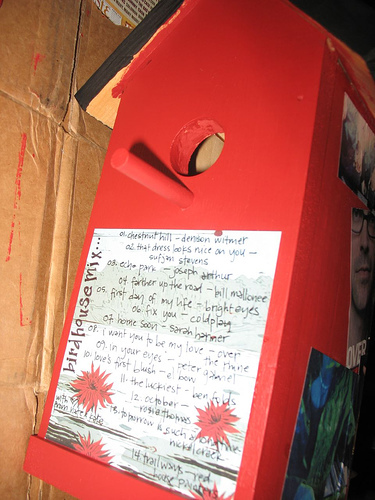 birdhouse mix...
01. chestnut hill - denison witmer
02. that dress looks nice on you -
sufjan stevens
03. echo park - joseph arthur
04. farther up the road - bill mallonee
05. first day of my life - bright eyes
06. fix you - coldplay
07. home soon - sarah harmer
08. i want you to be my love - over
the rhine
09. in your eyes - peter gabriel
10. love's first blush - el bow
11. the luckiest - ben folds
12. october -
rosie thomas
13. tomorrow is such a long time
nickel creek
14. trailways - red
house painters